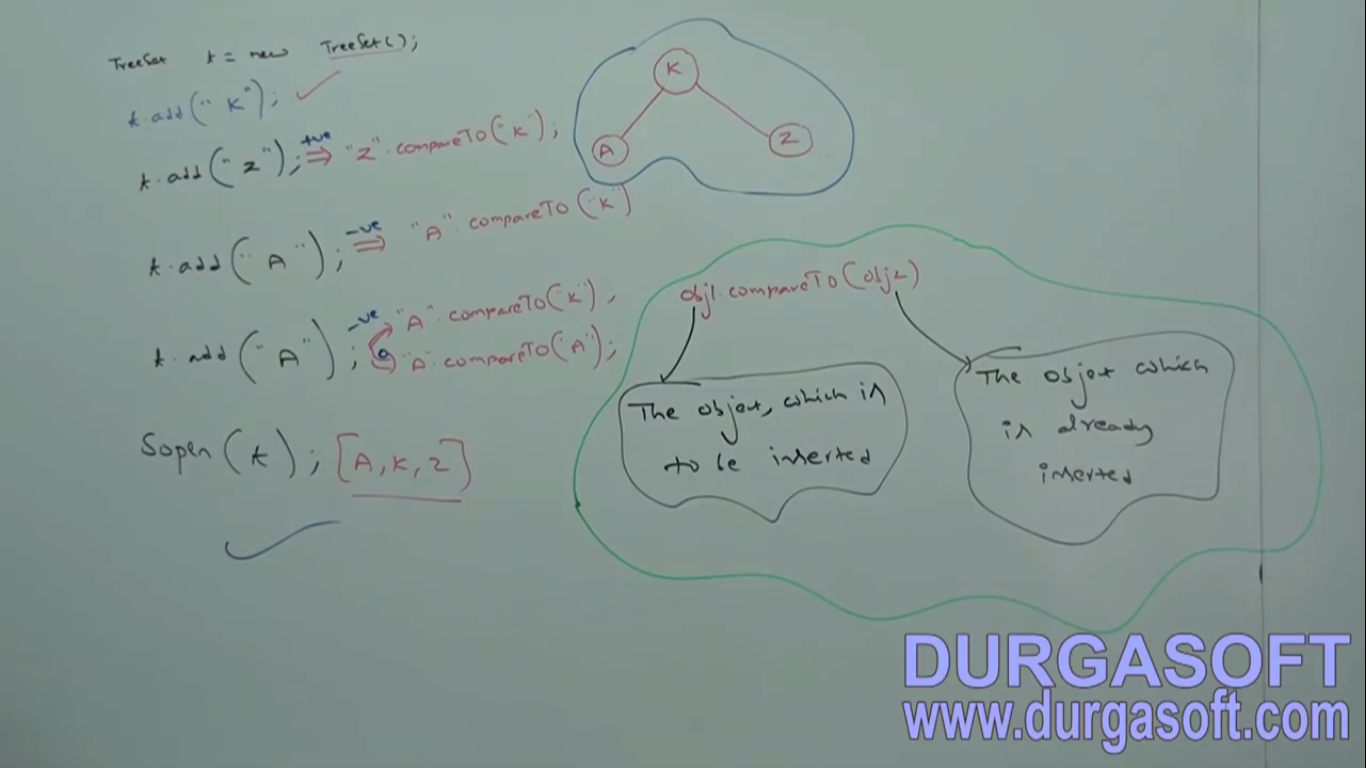 TreeSet t = new TreeSet();
t.add("K");
t.add("Z"); +ve ⇒ "Z".compareTo("K");
t.add("A"); -ve ⇒ "A".compareTo("K")
t.add("A"); -ve "A".compareTo("K");
0 "A".compareTo("A");
Sopln(t); [A, K, Z]
K
A
Z
obj1.compareTo(obj2)
The object, which is
to be inserted
The object which
is already
inserted
DURGASOFT
www.durgasoft.com